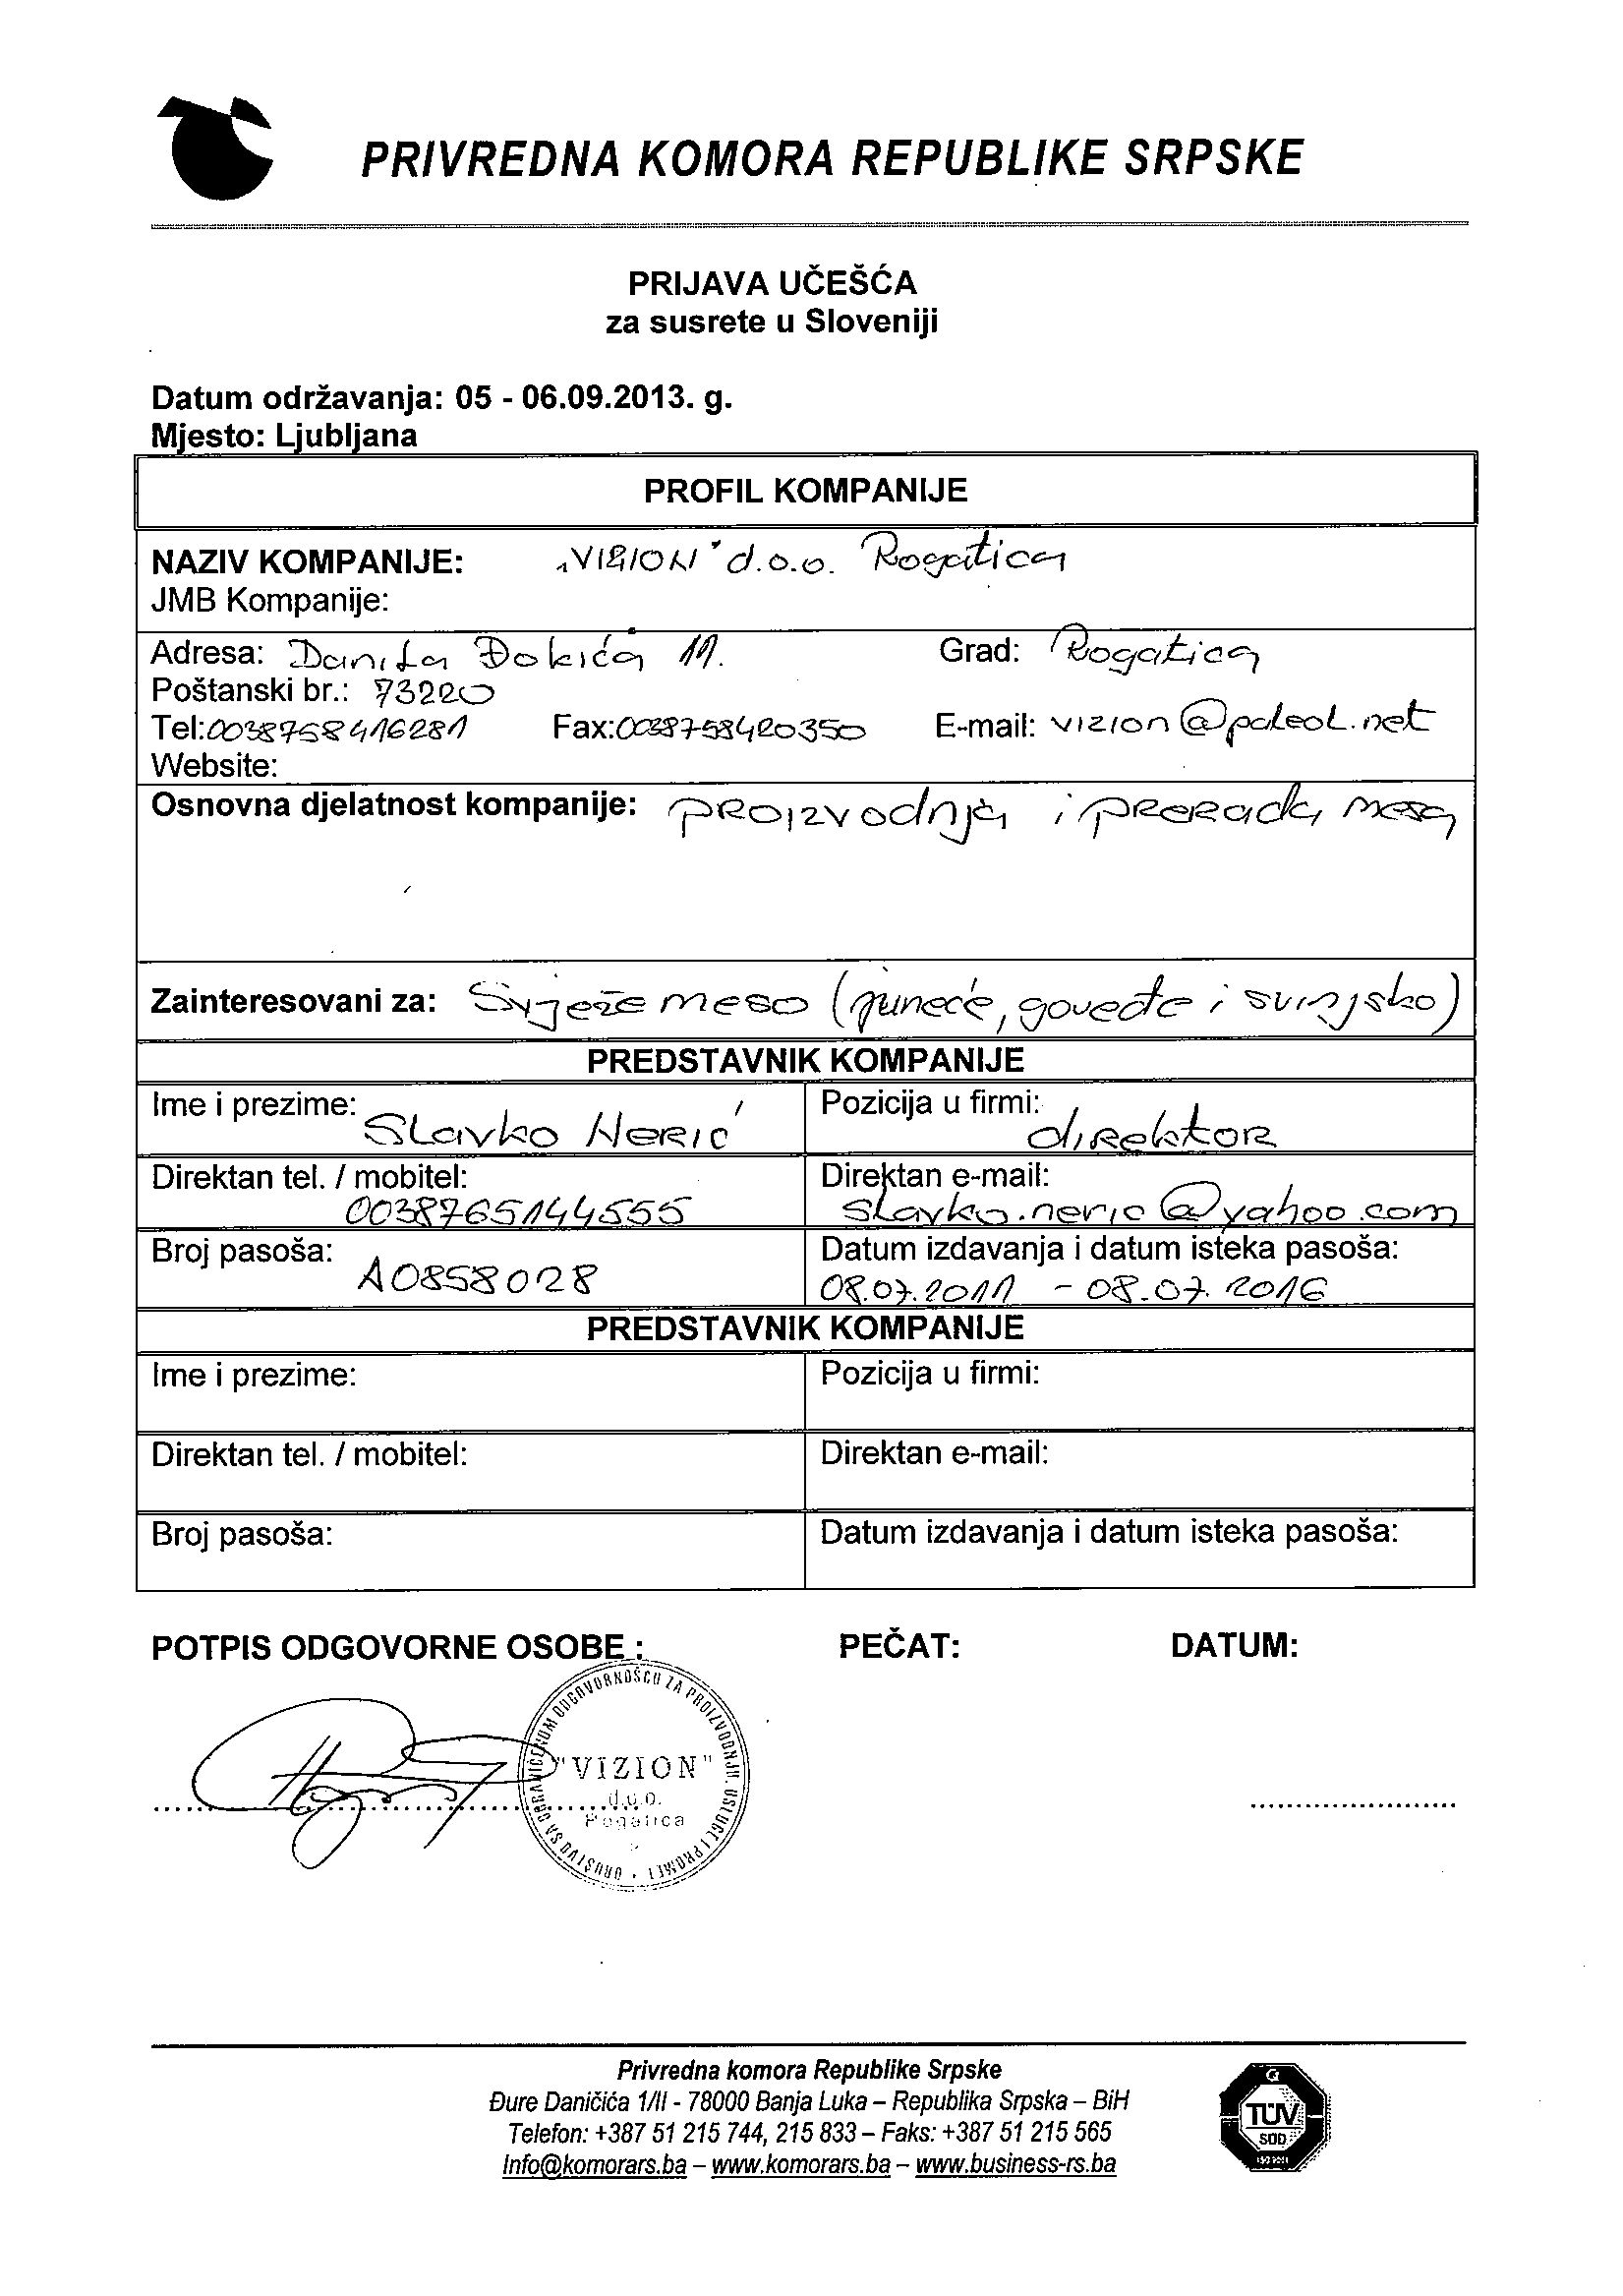 PRIVREDNA KOMORA REPUBLIKE SRPSKE
PRIJAVA UČEŠĆA
za susrete u Sloveniji
Datum održavanja: 05 - 06.09.2013. g.
Mjesto: Ljubljana
PROFIL KOMPANIJE
NAZIV KOMPANIJE: „VIZION" d.o.o. Rogatica
JMB Kompanije:
Adresa: Danila Đokića 11. Grad: Rogatica
Poštanski br.: 73220
Tel:0038758416281 Fax:0038758420350 E-mail: vizion@paleol.net
Website:
Osnovna djelatnost kompanije: proizvodnja i prerada mesa
Zainteresovani za: Svježe meso (juneće, goveđe i svinjsko)
PREDSTAVNIK KOMPANIJE
Ime i prezime: Slavko Nerić Pozicija u firmi: direktor
Direktan tel. / mobitel: 0038765144555 Direktan e-mail: slavko.neric@yahoo.com
Broj pasoša: A0858028 Datum izdavanja i datum isteka pasoša:
08.07.2011 - 08.07.2016
PREDSTAVNIK KOMPANIJE
Ime i prezime: Pozicija u firmi:
Direktan tel. / mobitel: Direktan e-mail:
Broj pasoša: Datum izdavanja i datum isteka pasoša:
POTPIS ODGOVORNE OSOBE : PEČAT: DATUM:
DRUŠTVO SA OGRANIČENOM ODGOVORNOŠĆU ZA PROIZVODNJU, USLUGE I PROMET
"VIZION"
d.o.o.
Rogatica
Privredna komora Republike Srpske
Đure Daničića 1/II - 78000 Banja Luka – Republika Srpska – BiH
Telefon: +387 51 215 744, 215 833 – Faks: +387 51 215 565
Info@komorars.ba – www.komorars.ba – www.business-rs.ba
Q
TÜV
SÜD
ISO 9001